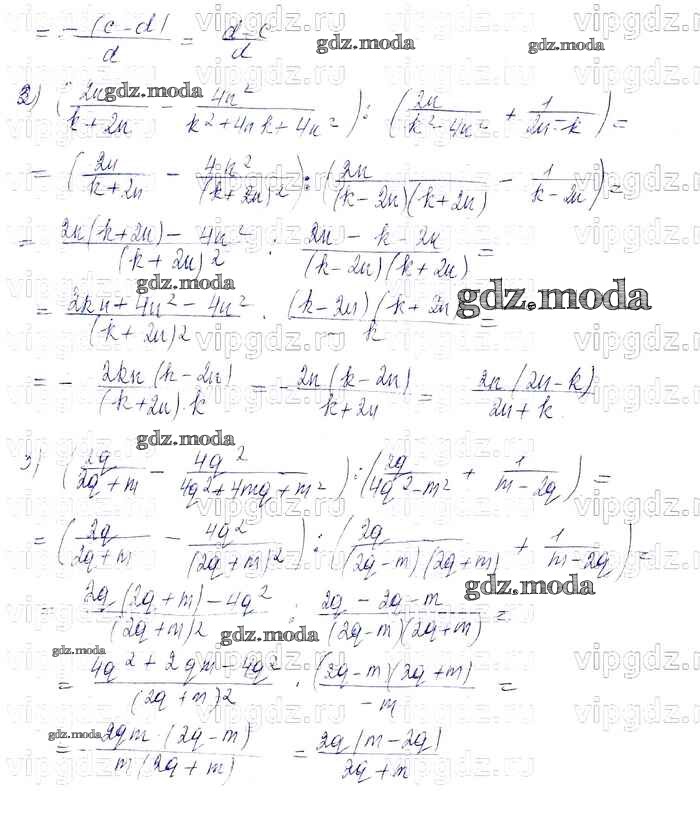 = - (c - d) / d = d - c / d
gdz.moda
2) ( 2n / k + 2n - 4n² / k² + 4nk + 4n² ) : ( 2n / k² - 4n² + 1 / 2n - k ) =
gdz.moda
= ( 2n / k + 2n - 4n² / (k + 2n)² ) : ( 2n / (k - 2n)(k + 2n) - 1 / k - 2n ) =
= 2n(k + 2n) - 4n² / (k + 2n)2 : 2n - k - 2n / (k - 2n)(k + 2n) =
gdz.moda
= 2kn + 4n² - 4n² / (k + 2n)2 · (k - 2n)(k + 2n / k =
gdz.moda
= - 2kn (k - 2n) / (k + 2n) · k = - 2n (k - 2n) / k + 2n = 2n (2n - k) / 2n + k
gdz.moda
3) ( 2q / 2q + m - 4q² / 4q² + 4mq + m² ) : ( 2q / 4q² - m² + 1 / m - 2q ) =
= ( 2q / 2q + m - 4q² / (2q + m)2 ) : ( 2q / (2q - m)(2q + m) + 1 / m - 2q ) =
gdz.moda
= 2q (2q + m) - 4q² / (2q + m)2 : 2q - 2q - m / (2q - m)(2q + m) =
gdz.moda
= 4q² + 2qm - 4q² / (2q + m)2 · (2q - m)(2q + m) / - m =
gdz.moda
= - 2qm · (2q - m) / m (2q + m) = 2q (m - 2q) / 2q + m
vipgdz.ru